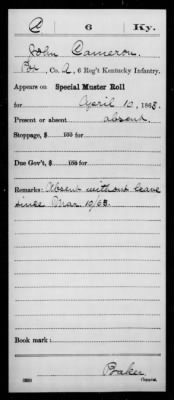 C 6 Ky.
John Cameron
Co. A, 6 Reg't Kentucky Infantry.
Appears on Special Muster Roll
for April 10, 1863.
Present or absent absent
Stoppage, $ 100 for
Due Gov't, $ 100 for
Remarks: Absent without leave
since Mar. 10/63.
Book mark:
Baker
Copyist.